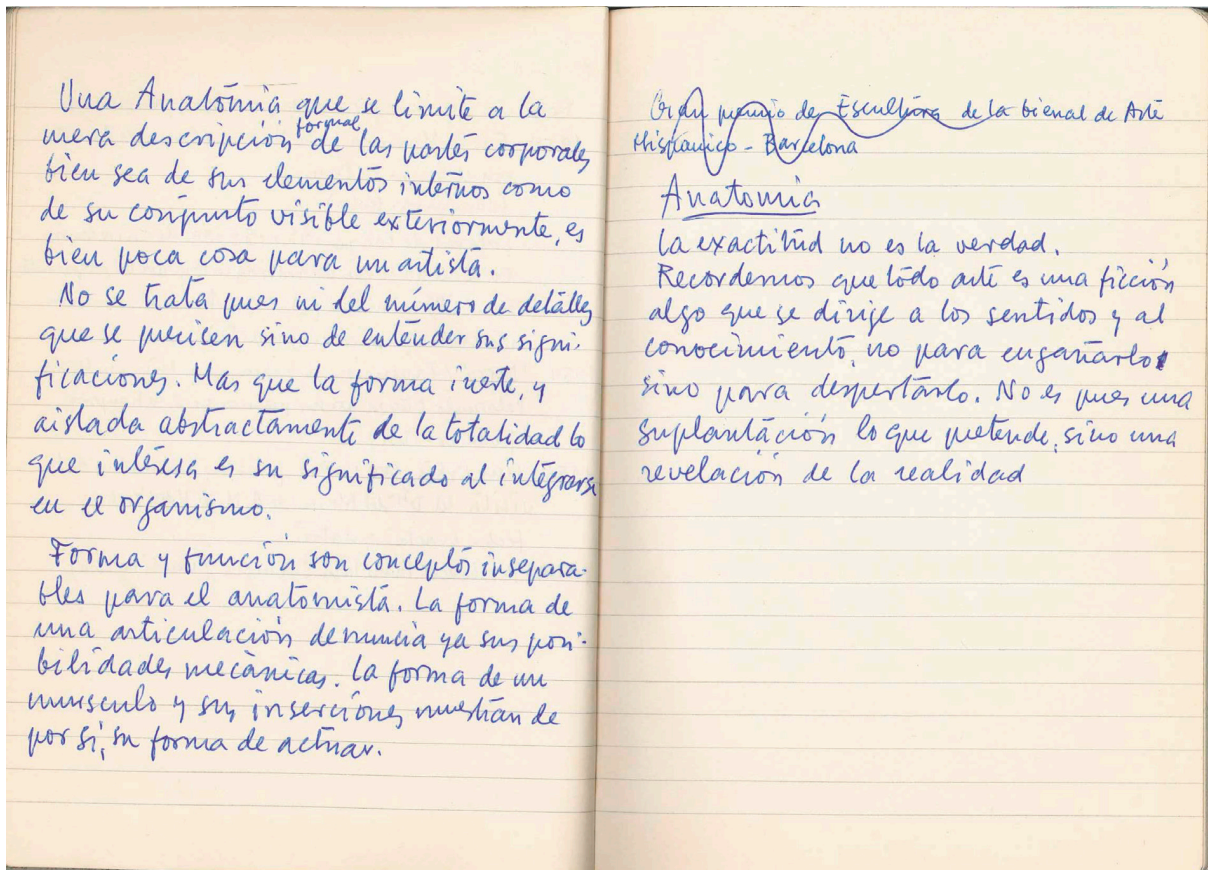 Una Anatomia que se limite a la
mera descripción formal de las partes corporales
bien sea de sus elementos internos como
de su conjunto visible exteriormente, es
bien poca cosa para un artista.
No se trata pues ni del número de detalles
que se precisen sino de entender sus signi-
ficaciones. Mas que la forma inerte, y
aislada abstractamente de la totalidad lo
que interesa es su significado al integrarse
en el organismo.
Forma y función son conceptos insepara-
bles para el anatomista. La forma de
una articulación denuncia ya sus posi-
bilidades mecánicas. la forma de un
musculo y sus inserciones muestran de
por si, su forma de actuar.
Gran premio de Escultura de la bienal de Arte
Hispánico - Barcelona
Anatomia
la exactitud no es la verdad.
Recordemos que todo arte es una ficción,
algo que se dirije a los sentidos y al
conocimiento, no para engañarlos
sino para despertarlo. No es pues una
suplantación lo que pretende, sino una
revelación de la realidad